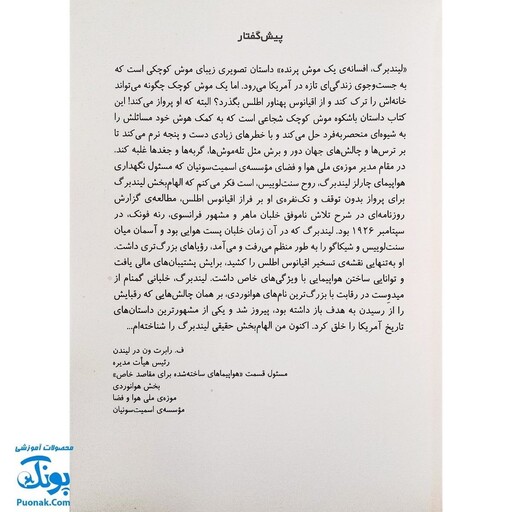 پیش‌گفتار
«لیندبرگ، افسانه‌ی یک موش پرنده» داستان تصویری زیبای موش کوچکی است که
به جست‌وجوی زندگی‌ای تازه در آمریکا می‌رود. اما یک موش کوچک چگونه می‌تواند
خانه‌اش را ترک کند و از اقیانوس پهناور اطلس بگذرد؟ البته که او پرواز می‌کند! این
کتاب داستان باشکوه موش کوچک شجاعی است که به کمک هوش خود مسائلش را
به شیوه‌ای منحصربه‌فرد حل می‌کند و با خطرهای زیادی دست و پنجه نرم می‌کند تا
بر ترس‌ها و چالش‌های جهان دور و برش مثل تله‌موش‌ها، گربه‌ها و جغدها غلبه کند.
در مقام مدیر موزه‌ی ملی هوا و فضای مؤسسه‌ی اسمیت‌سونیان که مسئول نگهداری
هواپیمای چارلز لیندبرگ، روح سنت‌لوییس، است فکر می‌کنم که الهام‌بخش لیندبرگ
برای پرواز بدون توقف و تک‌نفره‌ی او بر فراز اقیانوس اطلس، مطالعه‌ی گزارش
روزنامه‌ای در شرح تلاش ناموفق خلبان ماهر و مشهور فرانسوی، رنه فونک، در
سپتامبر ۱۹۲۶ بود. لیندبرگ که در آن زمان خلبان پست هوایی بود و آسمان میان
سنت‌لوییس و شیکاگو را به طور منظم می‌رفت و می‌آمد، رؤیاهای بزرگ‌تری داشت.
او به‌تنهایی نقشه‌ی تسخیر اقیانوس اطلس را کشید، برایش پشتیبان‌های مالی یافت
و توانایی ساختن هواپیمایی با ویژگی‌های خاص داشت. لیندبرگ، خلبانی گمنام از
میدوست در رقابت با بزرگ‌ترین نام‌های هوانوردی، بر همان چالش‌هایی که رقبایش
را از رسیدن به هدف باز داشته بود، پیروز شد و یکی از مشهورترین داستان‌های
تاریخ آمریکا را خلق کرد. اکنون من الهام‌بخش حقیقی لیندبرگ را شناخته‌ام...
ف. رابرت ون در لیندن
رئیس هیأت مدیره
مسئول قسمت «هواپیماهای ساخته‌شده برای مقاصد خاص»
بخش هوانوردی
موزه‌ی ملی هوا و فضا
مؤسسه‌ی اسمیت‌سونیان
محصولات آموزشی
پونک
Puonak.Com